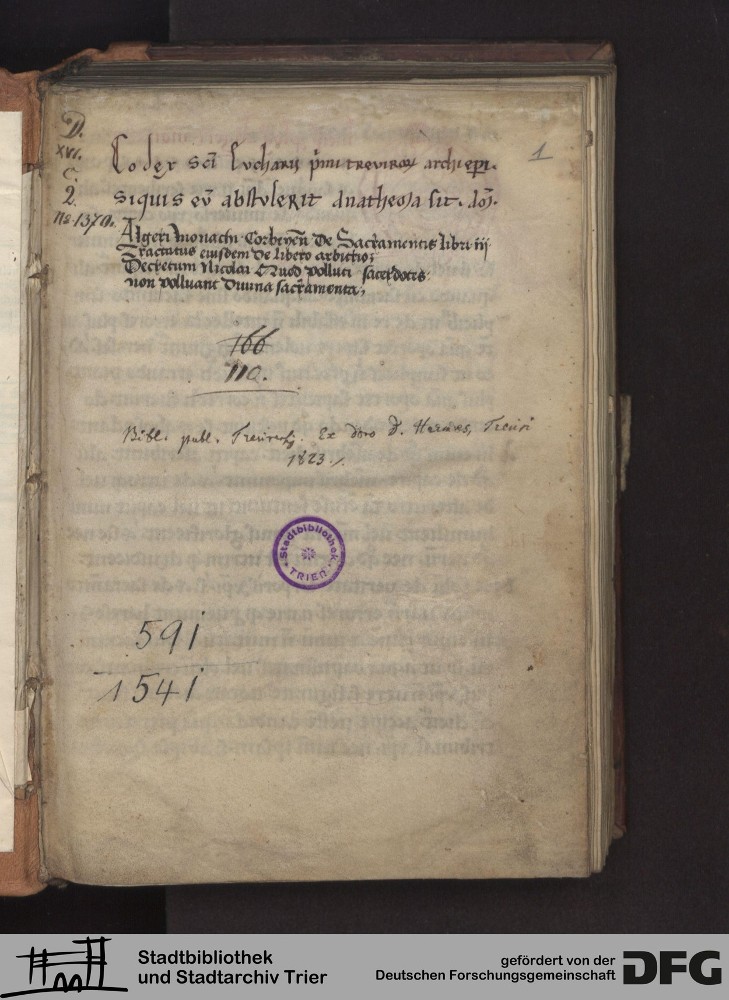 D.
XVI.
C.
2.
No. 1370.
1
Codex sci Eucharij p̄mi treuiroꝝ archiepi.
siquis eū abstulerit anathema sit. am̄.
Algeri monachi Corbeyen̄ De Sacramentis libri iij
Tractatus eiusdem de libero arbitrio;
Decretum Nicolai Quod polluti sacerdotes
non polluant Diuina sacramenta;
166
110.
Bibl. publ. Trevirens. Ex dono D. Hermes, Treviri
1823.
Stadtbibliothek
TRIER
591
1541
Stadtbibliothek
und Stadtarchiv Trier
gefördert von der
Deutschen Forschungsgemeinschaft
DFG